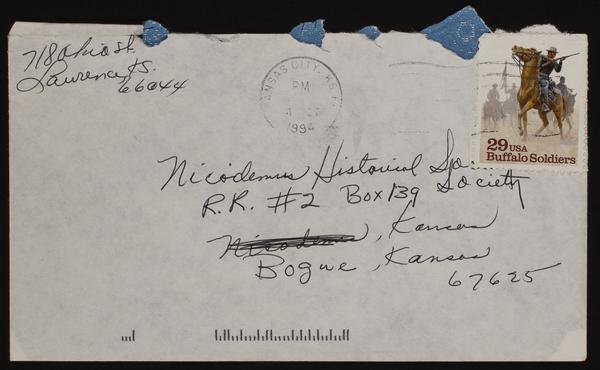 718 Ohio St.
Lawrence, KS.
66044
KANSAS CITY, KS
PM
1994
29 USA
Buffalo Soldiers
Nicodemus Historical
R.R. #2 Box 139 Society
Nicodemus, Kansas
Bogue, Kansas
67625